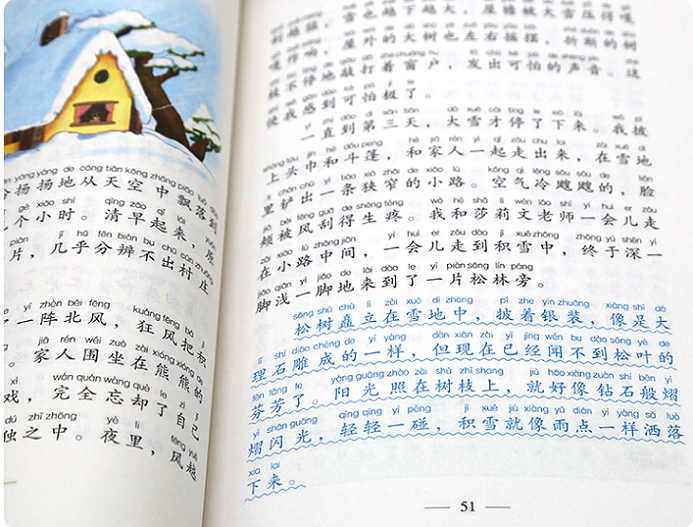 yáng yáng de cóng tiān kōng zhōng piāo luò dào
扬扬地从天空中飘落到
gè xiǎo shí qīng zǎo qǐ lái yuán
个小时。清早起来，原
piàn jī hū fēn biàn bu chū cūn zhuāng
片，几乎分辨不出村庄
yí zhèn běi fēng kuáng fēng bǎ jī
了一阵北风，狂风把积
jiā rén wéi zuò zài xióng xióng de
。家人围坐在熊熊的
wán quán wàng què le zì jǐ
戏，完全忘却了自己
dú zhī zhōng yè lǐ fēng yuè
独之中。夜里，风越
刮越猛，雪也越下越大，屋檐被大雪压得嘎
嘎作响，屋外的大树也左右摇摆，折断的树
枝不停地敲打着窗户，发出可怕的声音。这
使我感到可怕极了。
yì zhí dào dì sān tiān dà xuě cái tíng le xià lái wǒ pī
一直到第三天，大雪才停了下来。我披
shàng tóu jīn hé dǒu peng hé jiā rén yì qǐ zǒu chū lái zài xuě dì
上头巾和斗篷，和家人一起走出来，在雪地
lǐ chǎn chū yì tiáo xiá zhǎi de xiǎo lù kōng qì lěng sōu sōu de liǎn
里铲出一条狭窄的小路。空气冷飕飕的，脸
jiá bèi fēng guā de shēng téng wǒ hé shā lì wén lǎo shī yí huì er zǒu
颊被风刮得生疼。我和莎莉文老师一会儿走
zài xiǎo lù zhōng jiān yí huì er zǒu dào jī xuě zhōng zhōng yú shēn yì
在小路中间，一会儿走到积雪中，终于深一
jiǎo qiǎn yì jiǎo de lái dào le yí piàn sōng lín páng
脚浅一脚地来到了一片松林旁。
sōng shù chù lì zài xuě dì zhōng pī zhe yín zhuāng xiàng shì dà
松树矗立在雪地中，披着银装，像是大
lǐ shí diāo chéng de yí yàng dàn xiàn zài yǐ jīng wén bu dào sōng yè de
理石雕成的一样，但现在已经闻不到松叶的
fēn fāng le yáng guāng zhào zài shù zhī shàng jiù hǎo xiàng zuàn shí bān yì
芬芳了。阳光 照在树枝上，就好像钻石般熠
yì shǎn guāng qīng qīng yí pèng jī xuě jiù xiàng yǔ diǎn yí yàng sǎ luò
熠闪光，轻轻一碰，积雪就像雨点一样洒落
xià lai
下来。
51